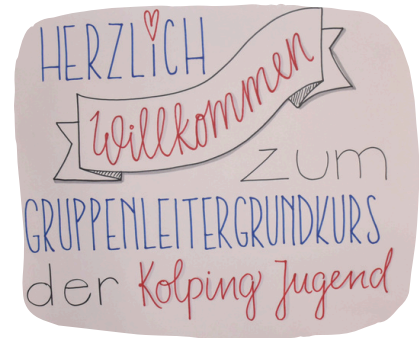 HERZLiCH
Willkommen
zum
GRUPPENLEITERGRUNDKURS
der Kolping Jugend